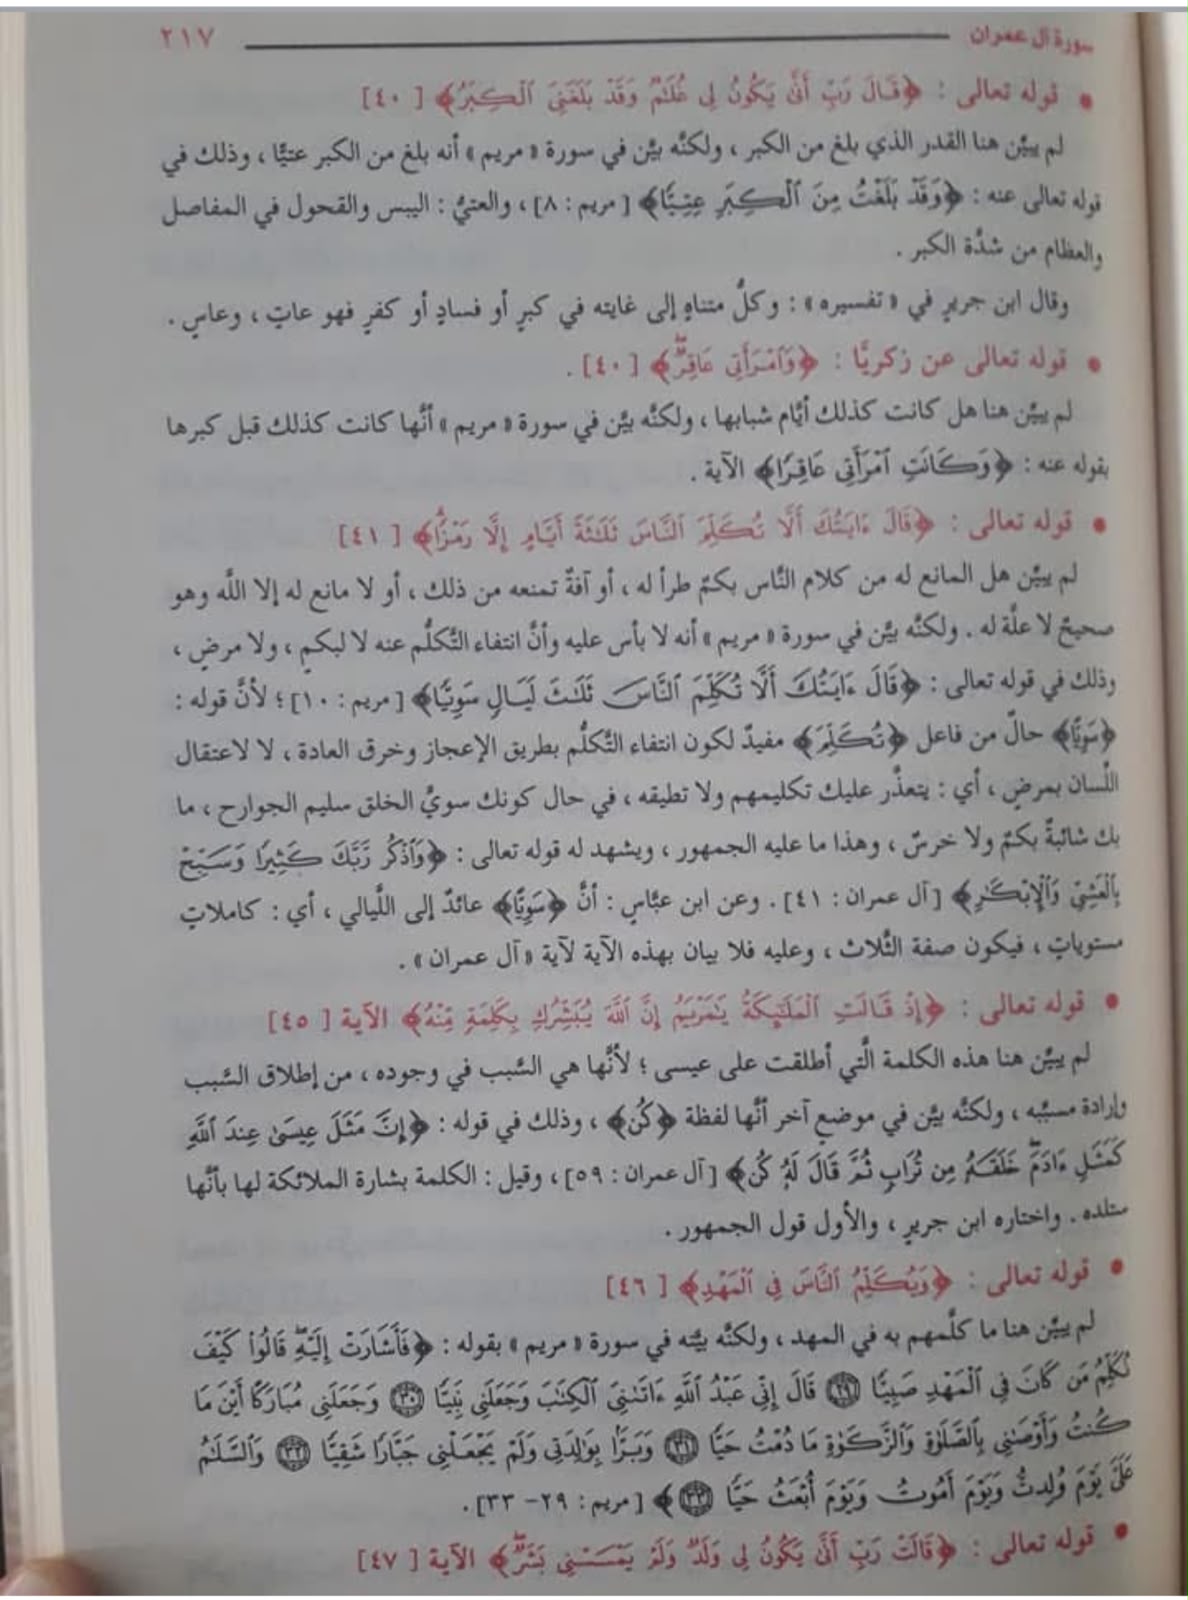 سورة آل عمران ٢١٧
• قوله تعالى : ﴿قَالَ رَبِّ أَنَّىٰ يَكُونُ لِى غُلَٰمٌ وَقَدْ بَلَغَنِىَ ٱلْكِبَرُ﴾ [٤٠]
لم يبيِّن هنا القدر الذي بلغ من الكبر ، ولكنَّه بيَّن في سورة « مريم » أنه بلغ من الكبر عتيًّا ، وذلك في
قوله تعالى عنه : ﴿وَقَدْ بَلَغْتُ مِنَ ٱلْكِبَرِ عِتِيًّا﴾ [مريم : ٨] ، والعتيُّ : اليبس والقحول في المفاصل
والعظام من شدَّة الكبر .
وقال ابن جريرٍ في « تفسيره » : وكلُّ متناهٍ إلى غايته في كبرٍ أو فسادٍ أو كفرٍ فهو عاتٍ ، وعاسٍ .
• قوله تعالى عن زكريَّا : ﴿وَٱمْرَأَتِى عَاقِرٌ﴾ [٤٠] .
لم يبيِّن هنا هل كانت كذلك أيَّام شبابها ، ولكنَّه بيَّن في سورة « مريم » أنَّها كانت كذلك قبل كبرها
بقوله عنه : ﴿وَكَانَتِ ٱمْرَأَتِى عَاقِرًا﴾ الآية .
• قوله تعالى : ﴿قَالَ ءَايَتُكَ أَلَّا تُكَلِّمَ ٱلنَّاسَ ثَلَٰثَةَ أَيَّامٍ إِلَّا رَمْزًا﴾ [٤١]
لم يبيِّن هل المانع له من كلام النَّاس بكمٌ طرأ له ، أو آفةٌ تمنعه من ذلك ، أو لا مانع له إلا اللَّه وهو
صحيحٌ لا علَّة له . ولكنَّه بيَّن في سورة « مريم » أنه لا بأس عليه وأنَّ انتفاء التَّكلُّم عنه لا لبكمٍ ، ولا مرضٍ ،
وذلك في قوله تعالى : ﴿قَالَ ءَايَتُكَ أَلَّا تُكَلِّمَ ٱلنَّاسَ ثَلَٰثَ لَيَالٍ سَوِيًّا﴾ [مريم : ١٠] ؛ لأنَّ قوله :
﴿سَوِيًّا﴾ حالٌ من فاعل ﴿تُكَلِّمَ﴾ مفيدٌ لكون انتفاء التَّكلُّم بطريق الإعجاز وخرق العادة ، لا لاعتقال
اللِّسان بمرضٍ ، أي : يتعذَّر عليك تكليمهم ولا تطيقه ، في حال كونك سويَّ الخلق سليم الجوارح ، ما
بك شائبةُ بكمٍ ولا خرسٍ ، وهذا ما عليه الجمهور ، ويشهد له قوله تعالى : ﴿وَٱذْكُر رَّبَّكَ كَثِيرًا وَسَبِّحْ
بِٱلْعَشِىِّ وَٱلْإِبْكَٰرِ﴾ [آل عمران : ٤١] . وعن ابن عبَّاسٍ : أنَّ ﴿سَوِيًّا﴾ عائدٌ إلى اللَّيالي ، أي : كاملاتٍ
مستوياتٍ ، فيكون صفة الثَّلاث ، وعليه فلا بيان بهذه الآية لآية « آل عمران » .
• قوله تعالى : ﴿إِذْ قَالَتِ ٱلْمَلَٰٓئِكَةُ يَٰمَرْيَمُ إِنَّ ٱللَّهَ يُبَشِّرُكِ بِكَلِمَةٍ مِّنْهُ﴾ الآية [٤٥]
لم يبيِّن هنا هذه الكلمة الَّتي أطلقت على عيسى ؛ لأنَّها هي السَّبب في وجوده ، من إطلاق السَّبب
وإرادة مسبَّبه ، ولكنَّه بيَّن في موضعٍ آخر أنَّها لفظة ﴿كُن﴾ ، وذلك في قوله : ﴿إِنَّ مَثَلَ عِيسَىٰ عِندَ ٱللَّهِ
كَمَثَلِ ءَادَمَ خَلَقَهُۥ مِن تُرَابٍ ثُمَّ قَالَ لَهُۥ كُن﴾ [آل عمران : ٥٩] ، وقيل : الكلمة بشارة الملائكة لها بأنَّها
ستلده . واختاره ابن جريرٍ ، والأول قول الجمهور .
• قوله تعالى : ﴿وَيُكَلِّمُ ٱلنَّاسَ فِى ٱلْمَهْدِ﴾ [٤٦]
لم يبيِّن هنا ما كلَّمهم به في المهد ، ولكنَّه بيَّنه في سورة « مريم » بقوله : ﴿فَأَشَارَتْ إِلَيْهِ قَالُوا۟ كَيْفَ
نُكَلِّمُ مَن كَانَ فِى ٱلْمَهْدِ صَبِيًّا ٢٩ قَالَ إِنِّى عَبْدُ ٱللَّهِ ءَاتَىٰنِىَ ٱلْكِتَٰبَ وَجَعَلَنِى نَبِيًّا ٣٠ وَجَعَلَنِى مُبَارَكًا أَيْنَ مَا
كُنتُ وَأَوْصَٰنِى بِٱلصَّلَوٰةِ وَٱلزَّكَوٰةِ مَا دُمْتُ حَيًّا ٣١ وَبَرًّۢا بِوَٰلِدَتِى وَلَمْ يَجْعَلْنِى جَبَّارًا شَقِيًّا ٣٢ وَٱلسَّلَٰمُ
عَلَىَّ يَوْمَ وُلِدتُّ وَيَوْمَ أَمُوتُ وَيَوْمَ أُبْعَثُ حَيًّا ٣٣﴾ [مريم : ٢٩- ٣٣] .
• قوله تعالى : ﴿قَالَتْ رَبِّ أَنَّىٰ يَكُونُ لِى وَلَدٌ وَلَمْ يَمْسَسْنِى بَشَرٌ﴾ الآية [٤٧]